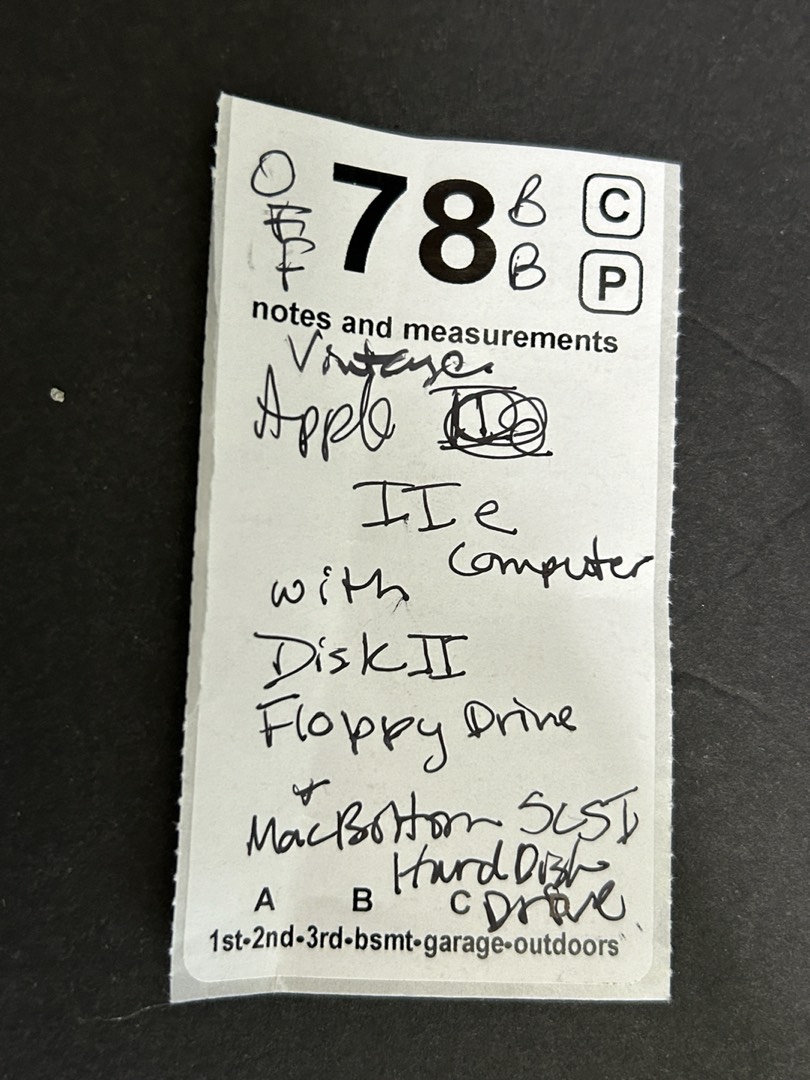 OFF 78 BB C
P
notes and measurements
Vintage
Apple
IIe
Computer
with
Disk II
Floppy Drive
+
MacBottom SCSI
Hard Disk
Drive
A B C
1st-2nd-3rd-bsmt-garage-outdoors